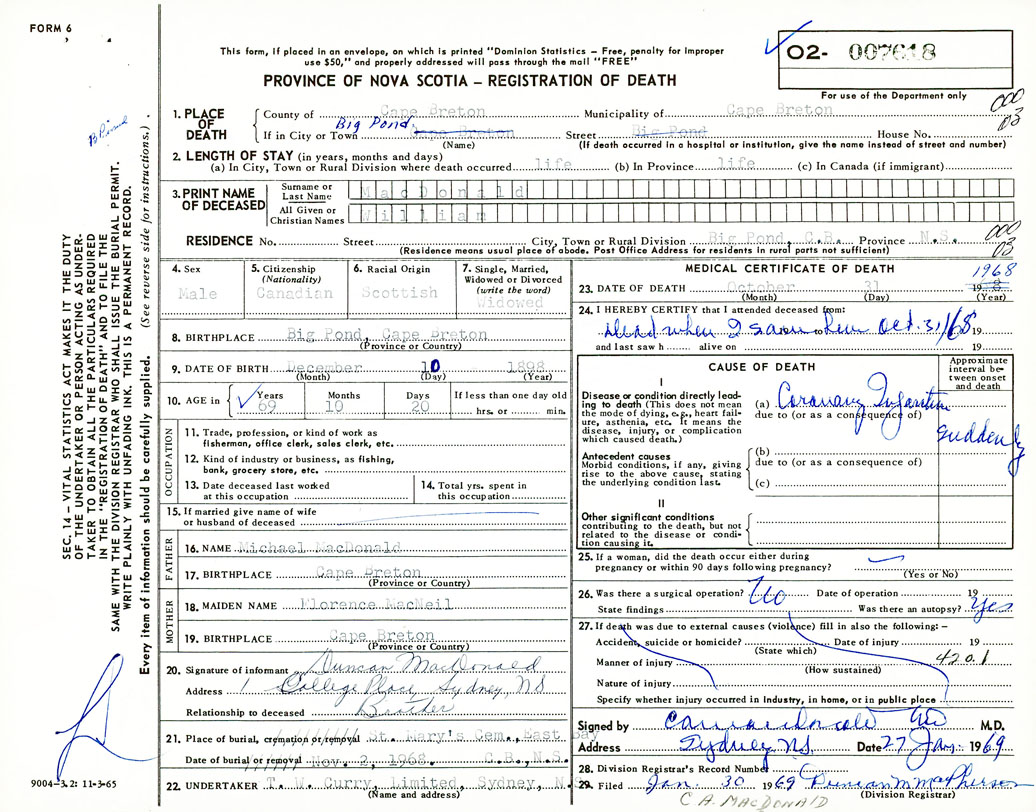 FORM 6
This form, if placed in an envelope, on which is printed "Dominion Statistics – Free, penalty for improper
use $50," and properly addressed will pass through the mail "FREE"
PROVINCE OF NOVA SCOTIA – REGISTRATION OF DEATH
O2- 007618
For use of the Department only
000
03
1. PLACE OF DEATH
County of Cape Breton Municipality of Cape Breton
If in City or Town Big Pond Cape Breton Street Big Pond House No.
(Name) (If death occurred in a hospital or institution, give the name instead of street and number)
2. LENGTH OF STAY (in years, months and days)
(a) In City, Town or Rural Division where death occurred life (b) In Province life (c) In Canada (if immigrant)
3. PRINT NAME OF DECEASED
Surname or Last Name MacDonald
All Given or Christian Names William
RESIDENCE No. Street City, Town or Rural Division Big Pond, C.B. Province N.S.
(Residence means usual place of abode. Post Office Address for residents in rural parts not sufficient)
000
03
4. Sex
Male
5. Citizenship
(Nationality)
Canadian
6. Racial Origin
Scottish
7. Single, Married,
Widowed or Divorced
(write the word)
Widowed
8. BIRTHPLACE Big Pond, Cape Breton
(Province or Country)
9. DATE OF BIRTH December 10 1898
(Month) (Day) (Year)
10. AGE in
Years Months Days If less than one day old
69 10 20 hrs. or min.
OCCUPATION
11. Trade, profession, or kind of work as
fisherman, office clerk, sales clerk, etc.
12. Kind of industry or business, as fishing,
bank, grocery store, etc.
13. Date deceased last worked
at this occupation
14. Total yrs. spent in
this occupation
15. If married give name of wife
or husband of deceased
FATHER
16. NAME Michael MacDonald
17. BIRTHPLACE Cape Breton
(Province or Country)
MOTHER
18. MAIDEN NAME Florence MacNeil
19. BIRTHPLACE Cape Breton
(Province or Country)
20. Signature of informant Duncan MacDonald
Address 1 College Place, Sydney, NS
Relationship to deceased Brother
21. Place of burial, cremation or removal St. Mary's Cem., East Bay
Date of burial or removal Nov. 2, 1968. C.B., N.S.
22. UNDERTAKER T. W. Curry, Limited, Sydney, N.S.
(Name and address)
MEDICAL CERTIFICATE OF DEATH
1968
23. DATE OF DEATH October 31 19 8
(Month) (Day) (Year)
24. I HEREBY CERTIFY that I attended deceased from:
Dead when I saw to him Oct. 31/68 19
and last saw h alive on 19
CAUSE OF DEATH
Approximate interval between onset and death
I
Disease or condition directly leading
to death (This does not mean
the mode of dying, e.g., heart failure,
asthenia, etc. It means the
disease, injury, or complication
which caused death.)
(a) Coronary Infarction
due to (or as a consequence of)
Suddenly
Antecedent causes
Morbid conditions, if any, giving
rise to the above cause, stating
the underlying condition last.
(b)
due to (or as a consequence of)
(c)
II
Other significant conditions
contributing to the death, but not
related to the disease or condition
causing it.
25. If a woman, did the death occur either during
pregnancy or within 90 days following pregnancy?
(Yes or No)
26. Was there a surgical operation? No Date of operation 19
State findings Was there an autopsy? Yes
27. If death was due to external causes (violence) fill in also the following: –
Accident, suicide or homicide? Date of injury 19
(State which)
Manner of injury 420.1
(How sustained)
Nature of injury
Specify whether injury occurred in Industry, in home, or in public place
Signed by M.D.
Address Sydney NS. Date 27 Jan. 1969
28. Division Registrar's Record Number
29. Filed Jan 30 1969 Duncan M MacPherson
(Division Registrar)
C A. MACDONALD
SEC. 14 – VITAL STATISTICS ACT MAKES IT THE DUTY
OF THE UNDERTAKER OR PERSON ACTING AS UNDER-
TAKER TO OBTAIN ALL THE PARTICULARS REQUIRED
IN THE "REGISTRATION OF DEATH" AND TO FILE THE
SAME WITH THE DIVISION REGISTRAR WHO SHALL ISSUE THE BURIAL PERMIT.
WRITE PLAINLY WITH UNFADING INK. THIS IS A PERMANENT RECORD.
Every item of information should be carefully supplied. (See reverse side for instructions.)
9004-3.2: 11-3-65